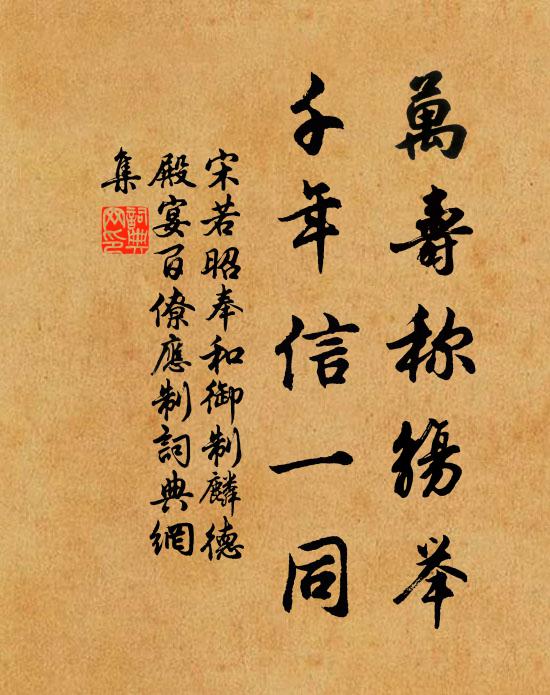 萬壽称觴举
千年信一同
宋若昭奉和御制麟德
殿宴百僚應制詞典網
集
詞典
网印